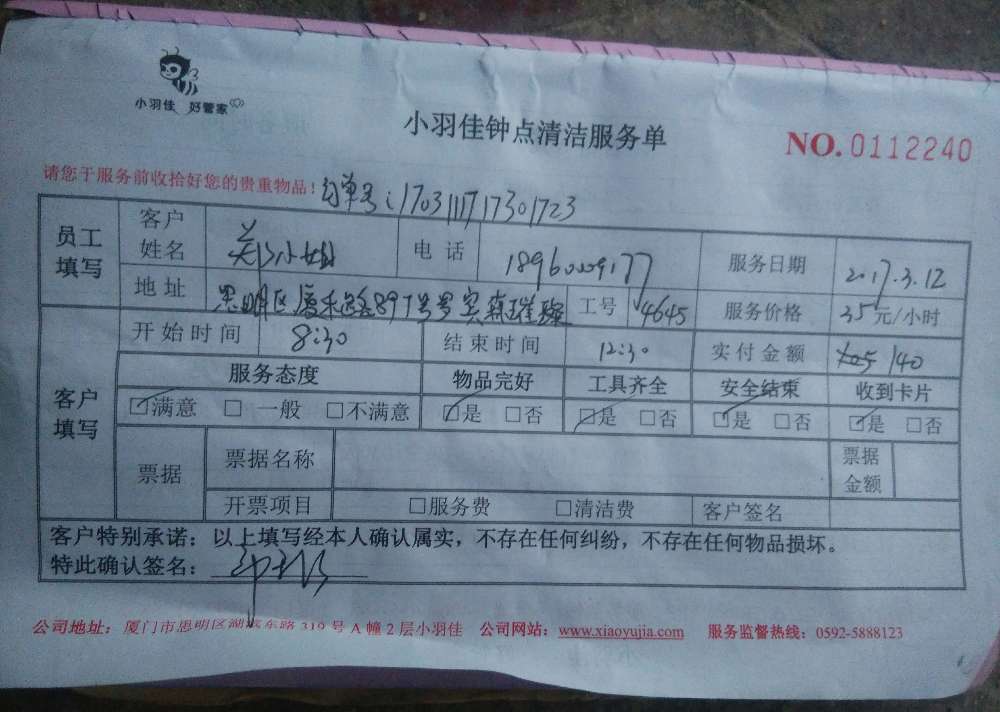 小羽佳 好管家
小羽佳钟点清洁服务单
NO.0112240
请您于服务前收拾好您的贵重物品！订单号：1703111717301723
员工填写 客户姓名 郑小姐 电话 18960009177 服务日期 2017.3.12
地址 思明区 工号 4645 服务价格 35元/小时
客户填写 开始时间 8:30 结束时间 12:30 实付金额 140
服务态度 物品完好 工具齐全 安全结束 收到卡片
☑满意 □一般 □不满意 ☑是 □否 ☑是 □否 ☑是 □否 ☑是 □否
票据 票据名称 票据金额
开票项目 □服务费 □清洁费 客户签名
客户特别承诺：以上填写经本人确认属实，不存在任何纠纷，不存在任何物品损坏。
特此确认签名：
公司地址：厦门市思明区湖滨东路319号A幢2层小羽佳 公司网站：www.xiaoyujia.com 服务监督热线：0592-5888123